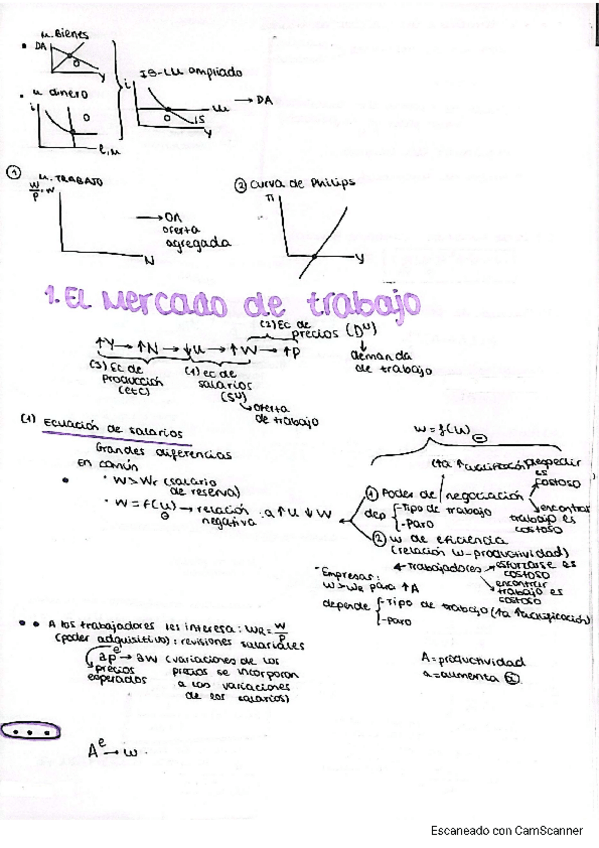 M. Bienes
DA
0
Y
M. dinero
i
0
L, M
IS-LM ampliado
i
LM
0
IS
Y
→ DA
① M. TRABAJO
W/P, W
N
→ OA
oferta
agregada
② Curva de Philips
Π
Y
1. El Mercado de trabajo
(2) Ec de
precios (Dᵘ)
↑Y → ↑N → ↓u → ↑W → ↑P
demanda
de trabajo
(3) Ec de
Producción
(etc)
(1) ec de
salarios
(Sᵘ)
oferta
de trabajo
(1) Ecuación de salarios
Grandes diferencias
en común
• W > WR (salario
de reserva)
• W = f(u) → relación : a ↑u ↓W
⊖ negativa
W = f(u)
⊖
(ta ↑cualificación)
despedir
es
costoso
① Poder de negociación
encontrar
trabajo es
costoso
dep { -Tipo de trabajo
-Paro
② W de eficiencia
(relación W-productividad)
Trabajadores
esforzarse es
costoso
encontrar
trabajo es
costoso
- Empresas:
W > WR para ↑A
depende { -Tipo de trabajo (ta ↑cualificación)
-Paro
• • A los trabajadores les interesa: WR = W/P
(poder adquisitivo): revisiones salariales
aPᵉ → aW (variaciones de los
precios
esperados
precios se incorporan
a las variaciones
de los salarios)
A = productividad
a = aumenta
• • •
Aᵉ → W.
Escaneado con CamScanner